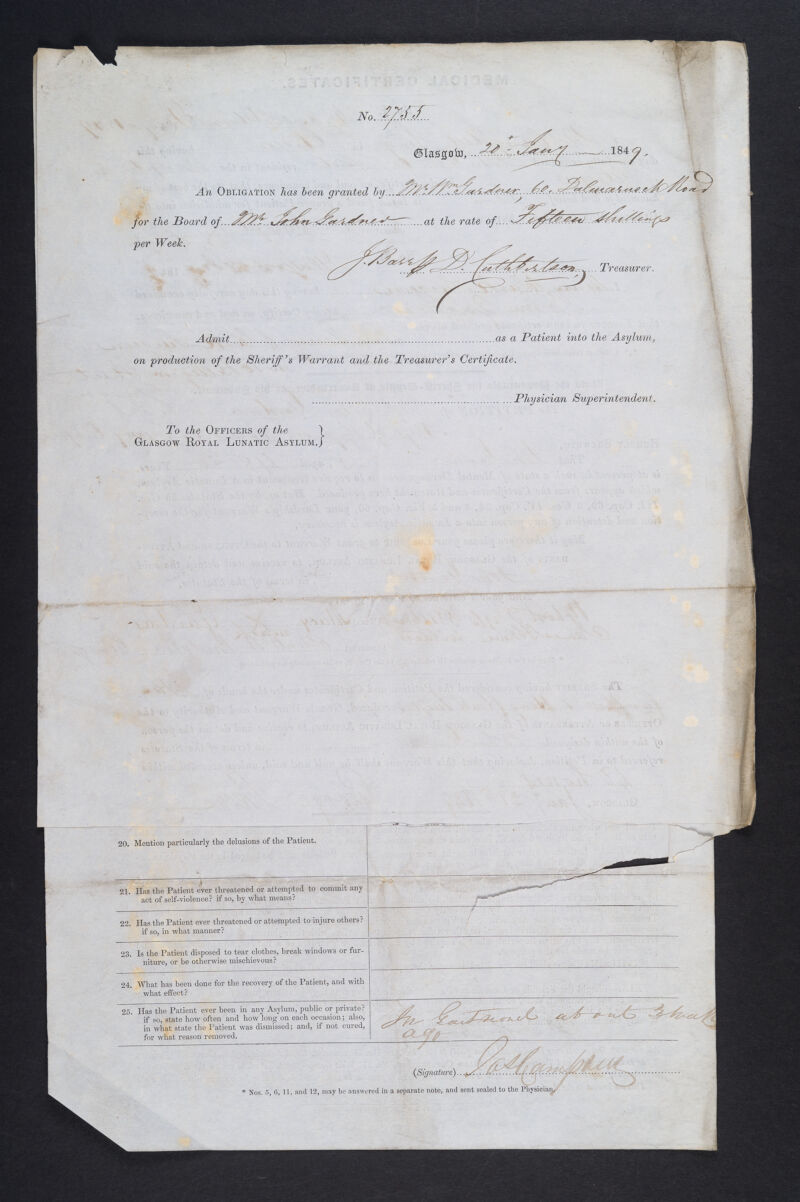 No. 2755
Glasgow, 20th Jany 1849.
An Obligation has been granted by Mr Wm Gardner, 60. Dalmarnock Road
for the Board of Mr John Gardner at the rate of Fifteen Shillings
per Week.
J. Barr p D. Cuthbertson, Treasurer.
Admit as a Patient into the Asylum,
on production of the Sheriff's Warrant and the Treasurer's Certificate.
Physician Superintendent.
To the Officers of the
Glasgow Royal Lunatic Asylum.}
20. Mention particularly the delusions of the Patient.
21. Has the Patient ever threatened or attempted to commit any
act of self-violence? if so, by what means?
22. Has the Patient ever threatened or attempted to injure others?
if so, in what manner?
23. Is the Patient disposed to tear clothes, break windows or fur-
niture, or be otherwise mischievous?
24. What has been done for the recovery of the Patient, and with
what effect?
25. Has the Patient ever been in any Asylum, public or private?
if so, state how often and how long on each occasion; also,
in what state the Patient was dismissed; and, if not cured,
for what reason removed.
In about 3 weeks
ago
(Signature) Campbell
* Nos. 5, 6, 11, and 12, may be answered in a separate note, and sent sealed to the Physician.